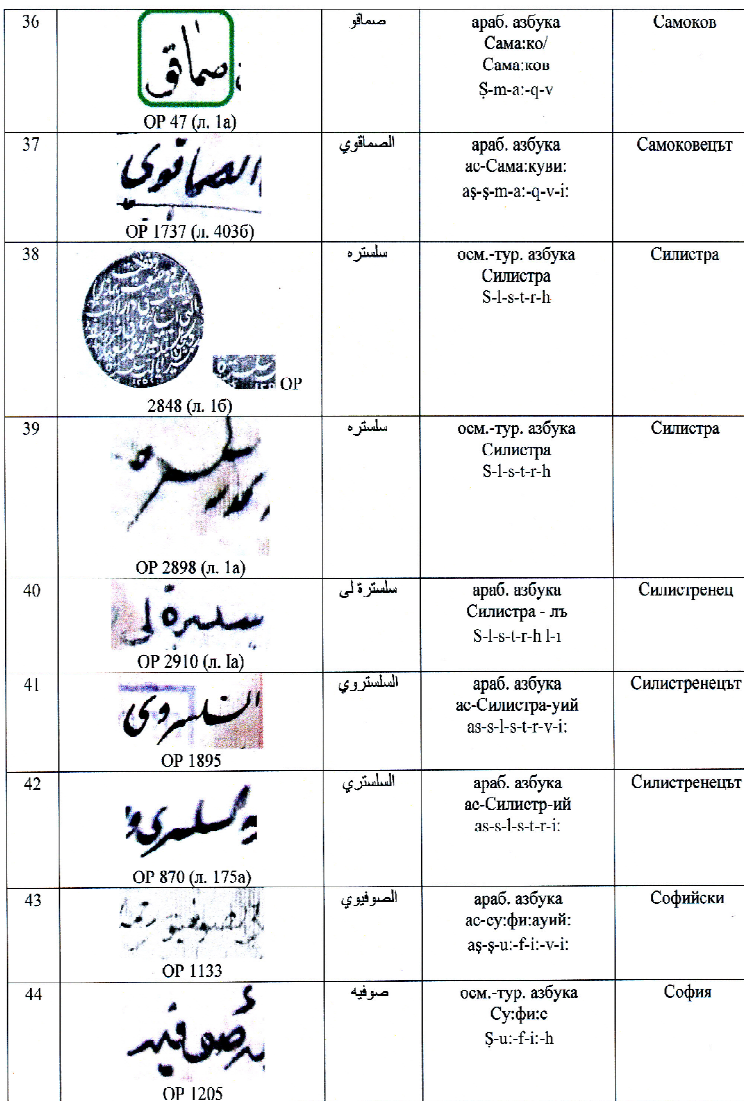 36
OP 47 (л. 1а)
صماقو
араб. азбука
Сама:ко/
Сама:ков
Ṣ-m-a:-q-v
Самоков
37
الصماقوي
OP 1737 (л. 403б)
الصماقوي
араб. азбука
ас-Сама:куви:
aş-ş-m-a:-q-v-i:
Самоковецът
38
OP
2848 (л. 1б)
سلستره
осм.-тур. азбука
Силистра
S-l-s-t-r-h
Силистра
39
OP 2898 (л. 1а)
سلستره
осм.-тур. азбука
Силистра
S-l-s-t-r-h
Силистра
40
OP 2910 (л. Iа)
سلسترة لى
араб. азбука
Силистра - лъ
S-l-s-t-r-h l-ı
Силистренец
41
OP 1895
السلستروي
араб. азбука
ас-Силистра-уий
as-s-l-s-t-r-v-i:
Силистренецът
42
OP 870 (л. 175а)
السلستري
араб. азбука
ас-Силистр-ий
as-s-l-s-t-r-i:
Силистренецът
43
OP 1133
الصوفيوي
араб. азбука
ас-су:фи:ауий:
aş-ş-u:-f-i:-v-i:
Софийски
44
OP 1205
صوفيه
осм.-тур. азбука
Су:фи:с
Ş-u:-f-i:-h
София